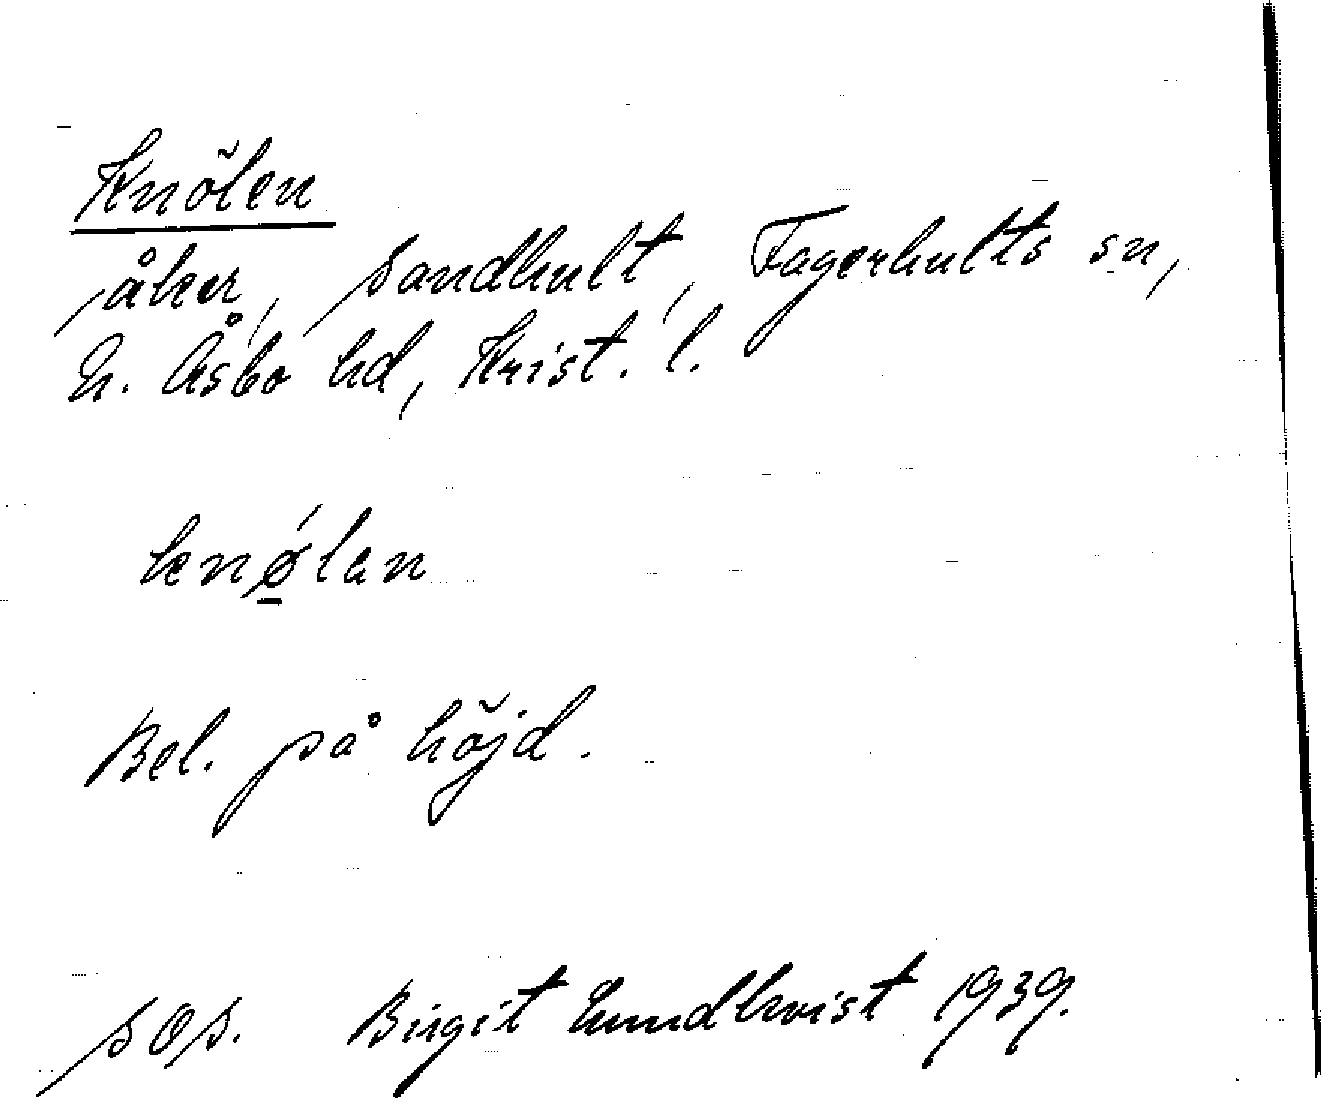 Knölen
åker, Sandhult, Fagerhults sn,
N. Åsbo hd, Krist. l.
knǿ̲lan
Bel. på höjd.
SOS. Birgit Lundkvist 1939.